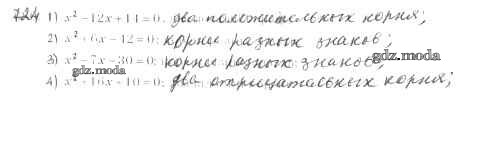 724 1) x² - 12x + 14 = 0; два положительных корня;
2) x² + 6x - 12 = 0; корни разных знаков;
3) x² - 7x - 30 = 0; корни разных знаков; gdz.moda
gdz.moda
4) x² + 16x + 10 = 0; два отрицательных корня;